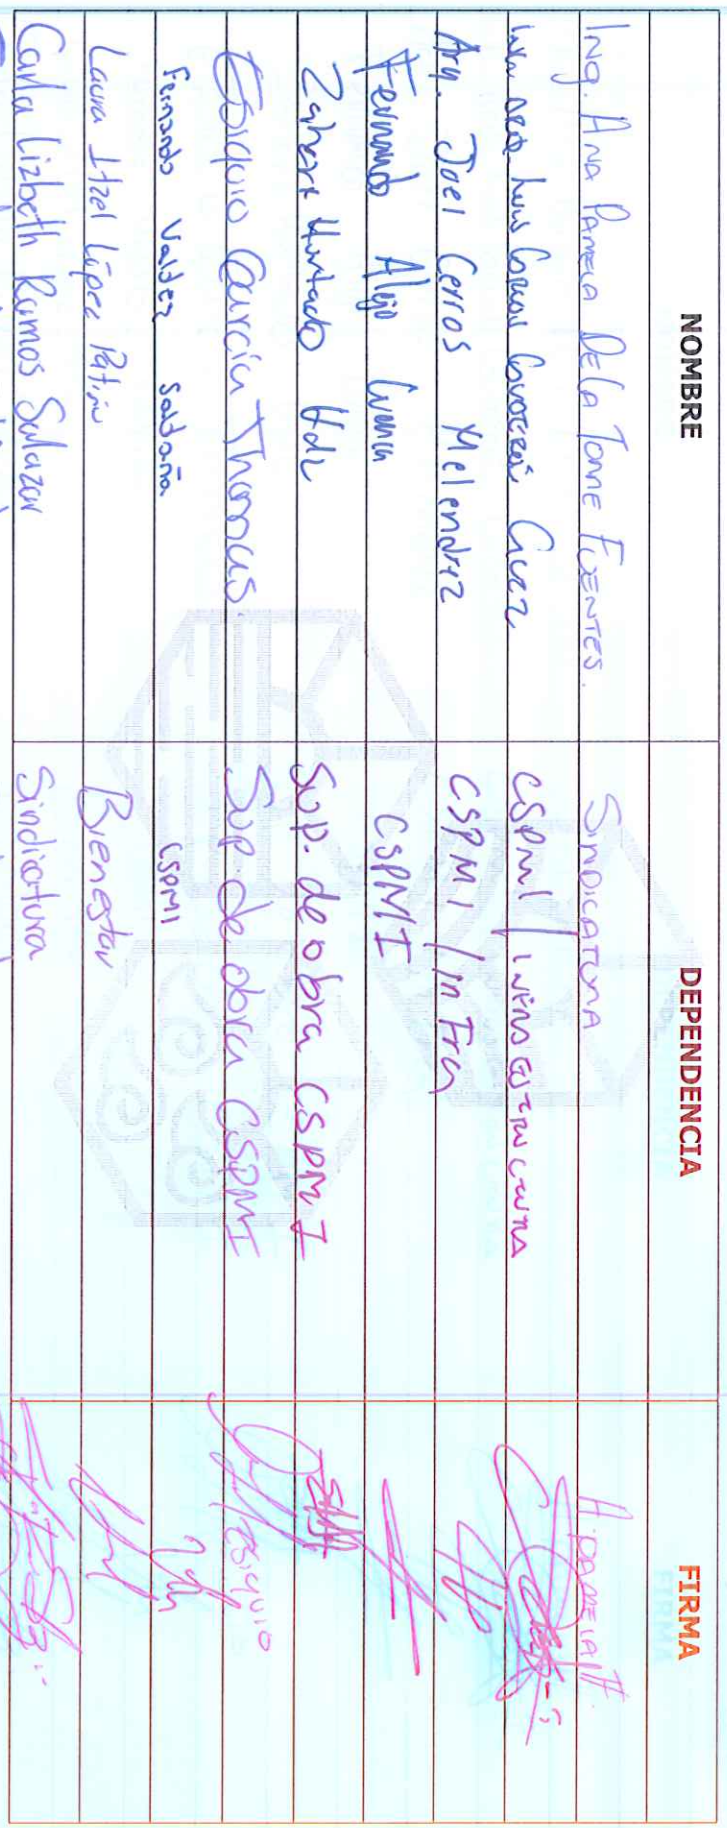 NOMBRE DEPENDENCIA FIRMA
Ing. ANA PAMELA DE LA TORRE FUENTES. SINDICATURA A. PAMELA
Luis CSPMI /
Arq. Joel Cerros Melendrez CSPMI / Infra
Fernando Alejo CSPMI
Hurtado Hdz Sup. de obra CSPMI
Esiquio García Thomas. Sup de obra CSPMI ESIQUIO
Fernando Valdez Saldaña CSPMI
Laura Itzel López Patiño Bienestar
Carla Lizbeth Ramos Salazar Sindicatura